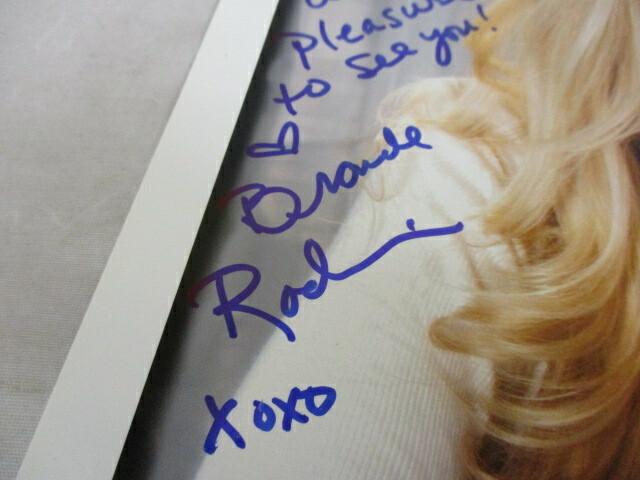 pleasure
to see you!
♡ Brande
Rod
xoxo